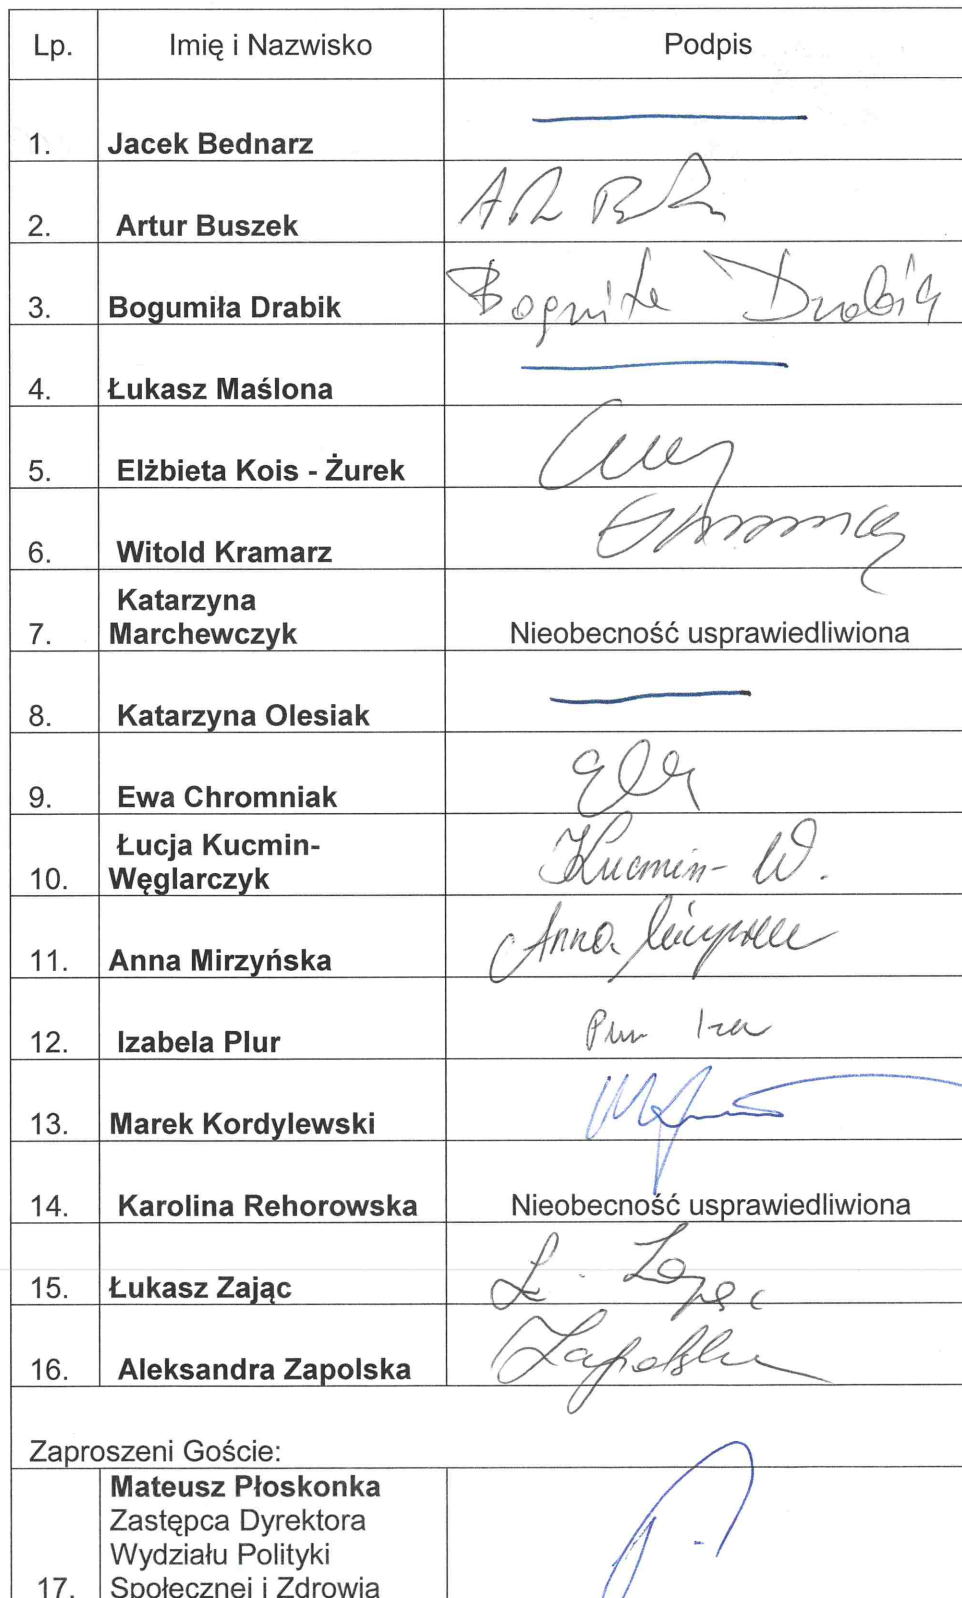 Lp. Imię i Nazwisko Podpis
1. Jacek Bednarz
2. Artur Buszek
3. Bogumiła Drabik Bogumiła Drabik
4. Łukasz Maślona
5. Elżbieta Kois - Żurek
6. Witold Kramarz
Katarzyna
7. Marchewczyk Nieobecność usprawiedliwiona
8. Katarzyna Olesiak
9. Ewa Chromniak
Łucja Kucmin-
10. Węglarczyk Kucmin- W.
11. Anna Mirzyńska Anna
12. Izabela Plur Plur Iza
13. Marek Kordylewski
14. Karolina Rehorowska Nieobecność usprawiedliwiona
15. Łukasz Zając Ł. Zając
16. Aleksandra Zapolska Zapolska
Zaproszeni Goście:
Mateusz Płoskonka
Zastępca Dyrektora
Wydziału Polityki
17. Społecznej i Zdrowia